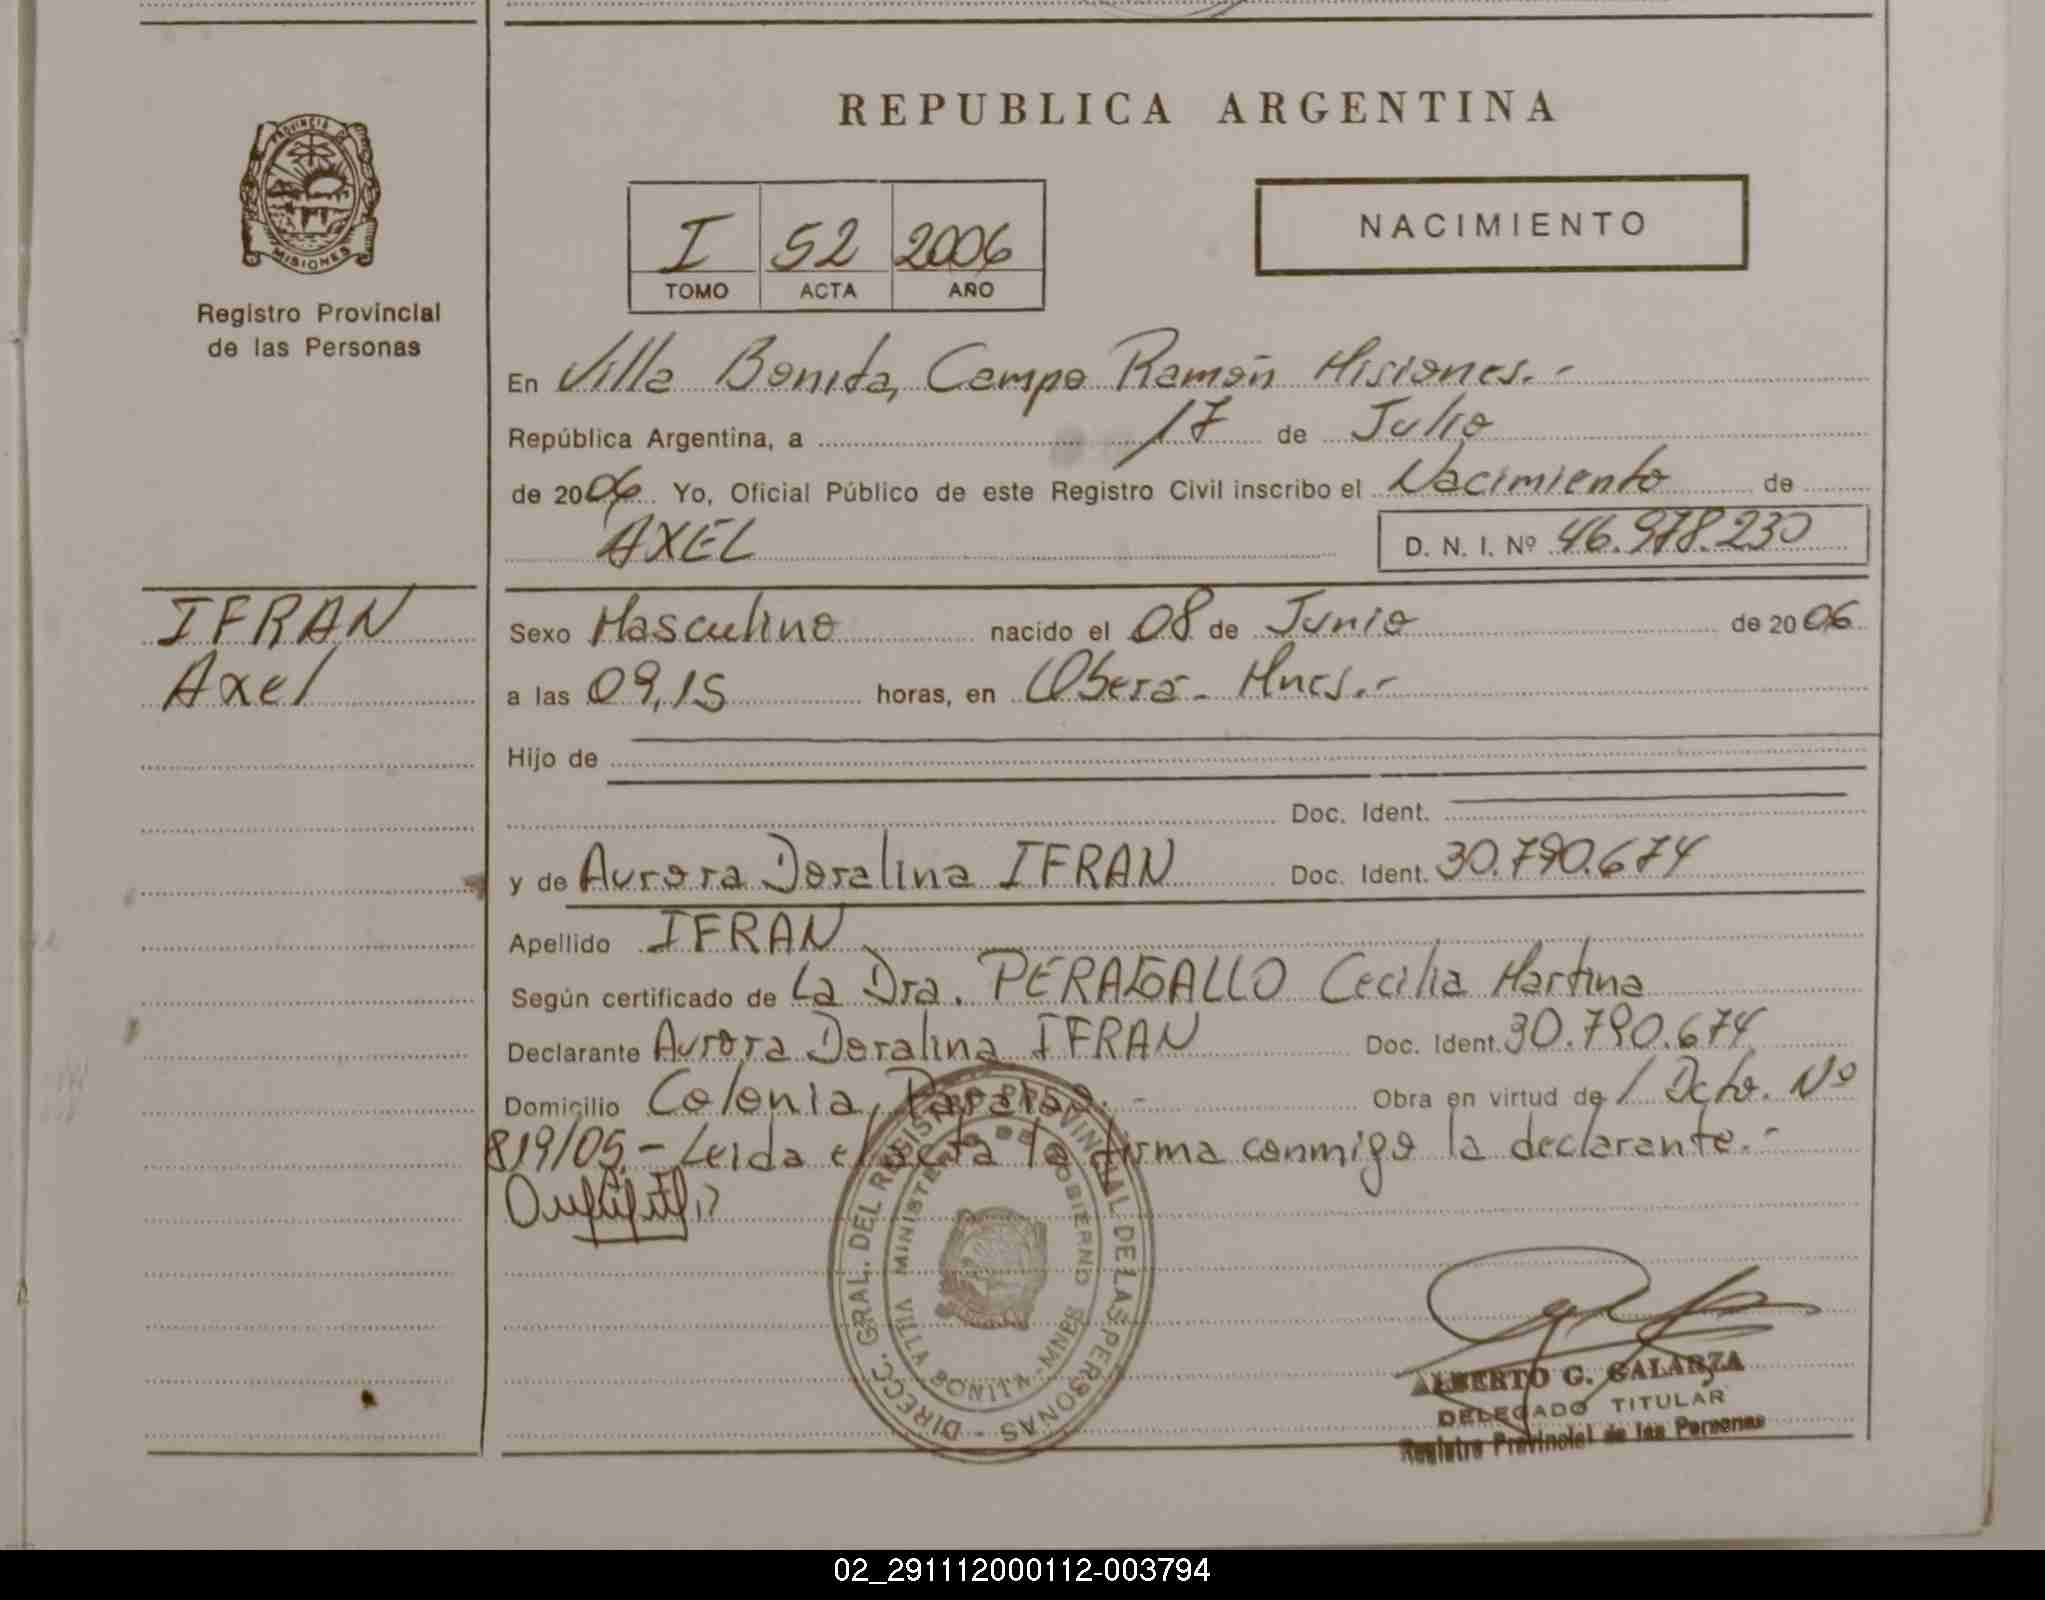 REPUBLICA ARGENTINA
PROVINCIA DE
MISIONES
Registro Provincial
de las Personas
I 52 2006
TOMO ACTA AÑO
NACIMIENTO
En Villa Bonita, Campo Ramón Misiones.-
República Argentina, a 17 de Julio
de 2006 Yo, Oficial Público de este Registro Civil inscribo el Nacimiento de
AXEL D. N. I. Nº 46.978.230
IFRAN
Axel
Sexo Masculino nacido el 08 de Junio de 2006
a las 09,15 horas, en Oberá- Mnes.-
Hijo de
Doc. Ident.
y de Aurora Doralina IFRAN Doc. Ident. 30.790.674
Apellido IFRAN
Según certificado de La Dra. PERAGALLO Cecilia Martina
Declarante Aurora Doralina IFRAN Doc. Ident. 30.790.674
Domicilio Colonia, Obra en virtud de / Dcto. Nº
819/05.- Leida el acta la firma conmigo la declarante.-
DIRECC. GRAL. DEL REGISTRO PROVINCIAL DE LAS PERSONAS -
MINISTERIO DE GOBIERNO
VILLA BONITA - MNES
ALBERTO G. GALARZA
DELEGADO TITULAR
Registro Provincial de las Personas
02_291112000112-003794